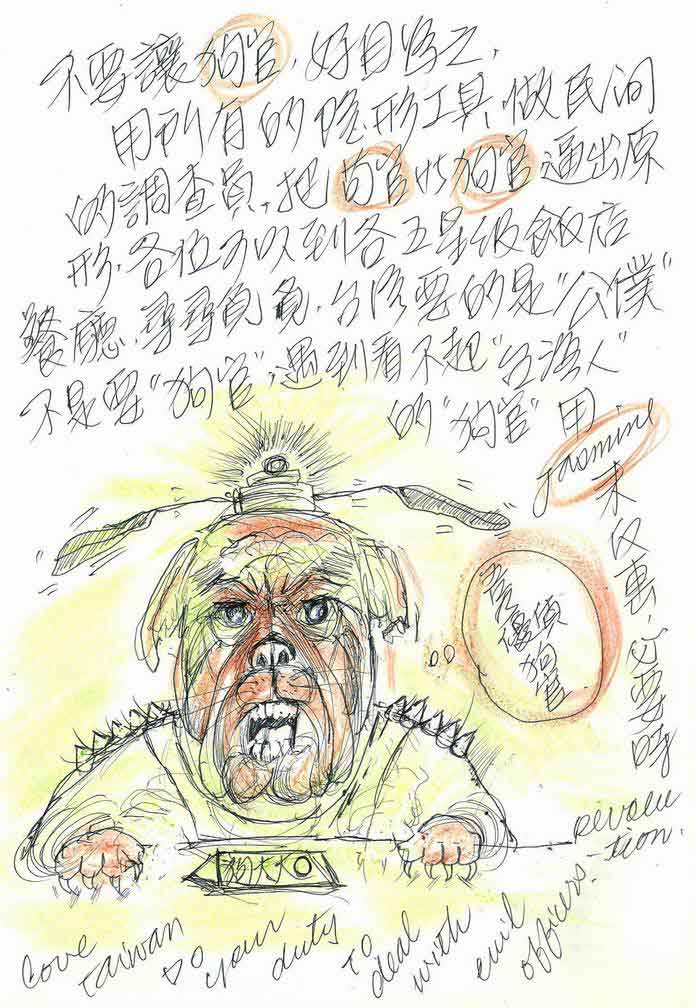 不要讓狗官,好自為之,
用所有的隱形工具,做民間
的調查員,把苟官vs狗官逼出原
形,各位可以到各五星級飯店
餐廳,尋尋覓覓,台灣要的是"公僕"
不是要"狗官",遇到看不起"台灣人"
的"狗官"用
Jasmine
來伺惠,必要時
revolu
tion.
偵
狗官
狗大人
Love Taiwan Do your duty To deal with evil officers.